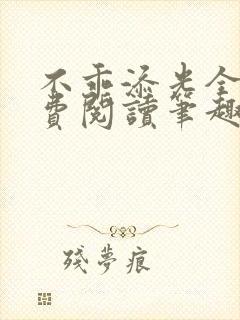 不乖添光全
費閱讀筆趣
殘夢痕